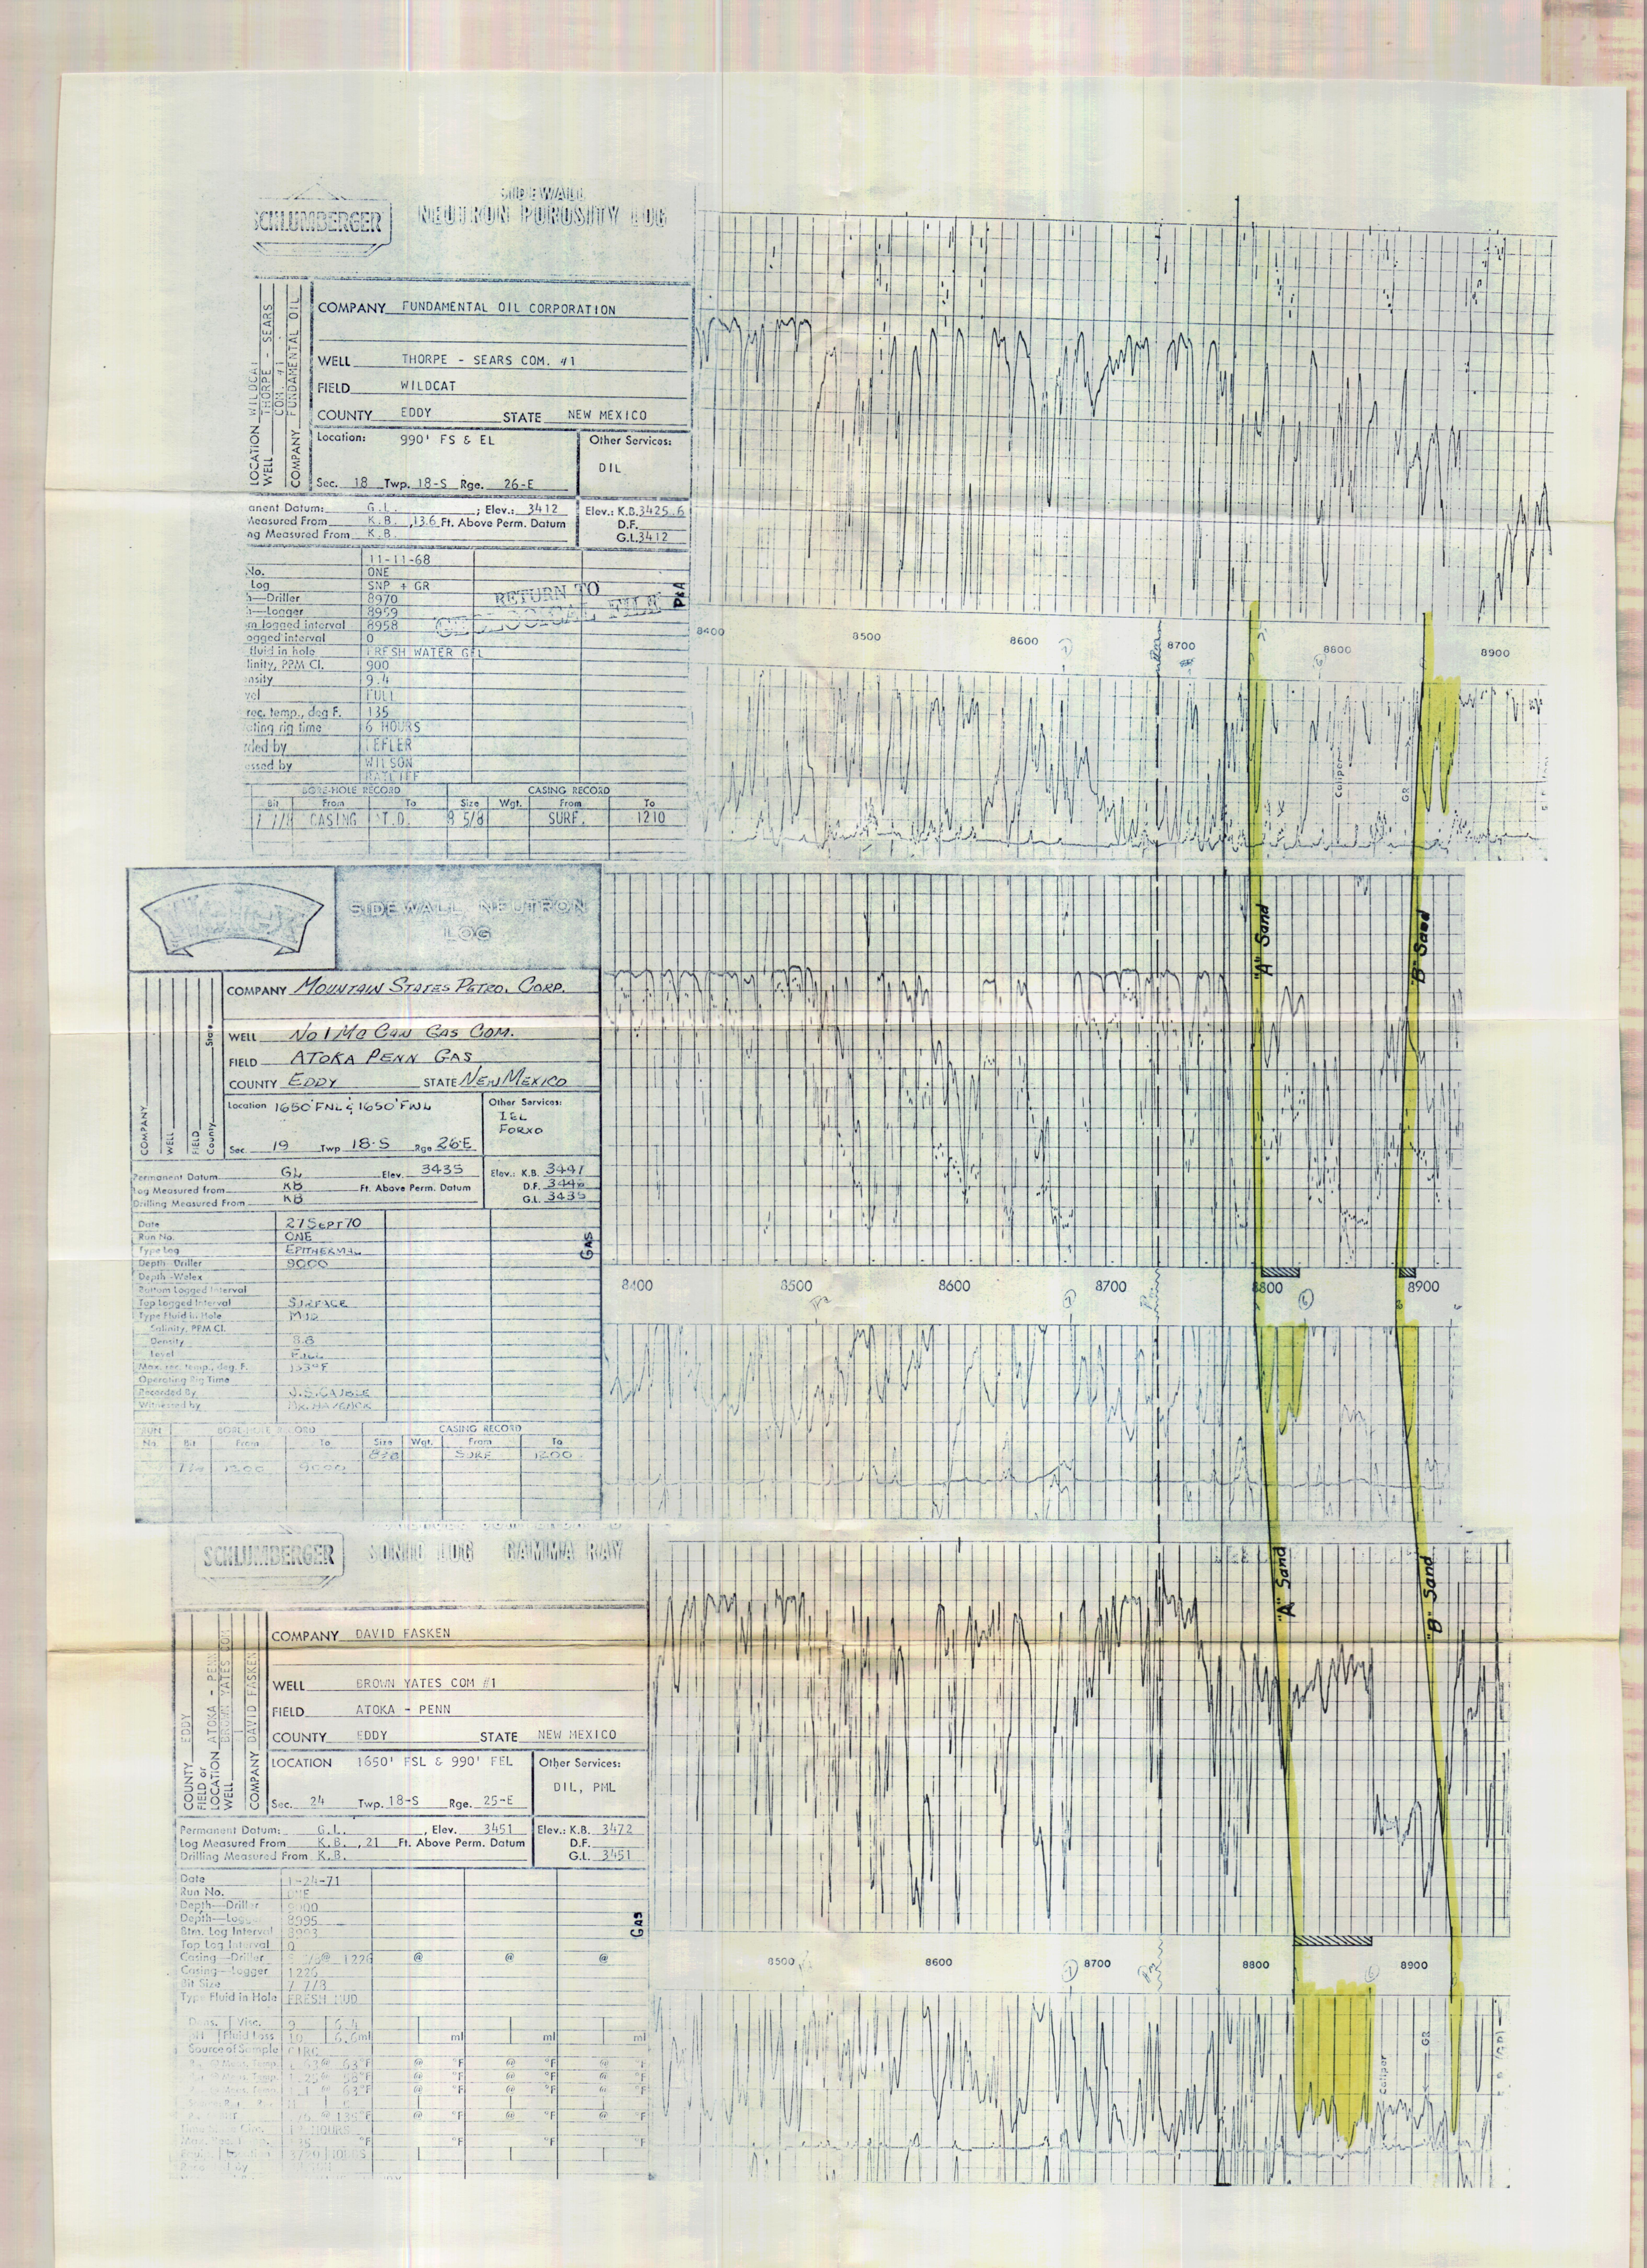 SCHLUMBERGER
SIDEWALL
NEUTRON POROSITY LOG
COMPANY FUNDAMENTAL OIL CORPORATION
WELL THORPE - SEARS COM. #1
FIELD WILDCAT
COUNTY EDDY STATE NEW MEXICO
LOCATION WILDCAT
WELL THORPE - SEARS
COM. #1
COMPANY FUNDAMENTAL OIL
Location: 990' FS & EL
Other Services:
DIL
Sec. 18 Twp. 18-S Rge. 26-E
anent Datum: G.L. ; Elev.: 3412
Measured From K.B. , 13.6 Ft. Above Perm. Datum
ng Measured From K.B.
Elev.: K.B. 3425.6
D.F.
G.L. 3412
11-11-68
No. ONE
Log SNP + GR
h—Driller 8970
h—Logger 8959
m logged interval 8958
ogged interval 0
fluid in hole FRESH WATER GEL
linity, PPM Cl. 900
nsity 9.4
vel FULL
rec. temp., deg F. 135
ating rig time 6 HOURS
rded by LEFLER
essed by WILSON
RATLIFF
RETURN TO
GEOLOGICAL FILE
P&A
BORE-HOLE RECORD CASING RECORD
Bit From To Size Wgt. From To
7 7/8 CASING T.D. 8 5/8 SURF. 1210
8400 8500 8600 8700 8800 8900
Caliper
GR
SIDEWALL NEUTRON
LOG
COMPANY MOUNTAIN STATES PETRO. CORP.
WELL No 1 Mc Caw Gas Com.
FIELD ATOKA PENN GAS
COUNTY EDDY STATE NEW MEXICO
COMPANY
WELL
FIELD
County State
Location 1650' FNL & 1650' FWL
Other Services:
IEL
FORXO
Sec. 19 Twp 18-S Rge 26-E
Permanent Datum GL Elev. 3435
Log Measured from KB Ft. Above Perm. Datum
Drilling Measured From KB
Elev.: K.B. 3447
D.F. 3446
G.L. 3435
Date 27 SEPT 70
Run No. ONE
Type Log EPITHERMAL
Depth-Driller 9000
Depth-Welex
Bottom Logged Interval
Top Logged Interval SURFACE
Type Fluid in Hole MUD
Salinity, PPM Cl.
Density 8.8
Level FULL
Max. rec. temp., deg. F. 133°F
Operating Rig Time
Recorded By
Witnessed by
GAS
RUN BORE-HOLE RECORD CASING RECORD
No. Bit From To Size Wgt. From To
8 5/8 SURF 1200
7 7/8 1200 9000
"A" Sand
"B" Sand
8400 8500 8600 8700 8800 8900
SCHLUMBERGER
SONIC LOG GAMMA RAY
COMPANY DAVID FASKEN
WELL BROWN YATES COM #1
FIELD ATOKA - PENN
COUNTY EDDY STATE NEW MEXICO
COUNTY EDDY
FIELD or
LOCATION ATOKA - PENN
WELL BROWN YATES COM
COMPANY DAVID FASKEN
LOCATION 1650' FSL & 990' FEL
Other Services:
DIL, PML
Sec. 24 Twp. 18-S Rge. 25-E
Permanent Datum: G.L. , Elev. 3451
Log Measured From K.B. , 21 Ft. Above Perm. Datum
Drilling Measured From K.B.
Elev.: K.B. 3472
D.F.
G.L. 3451
Date 1-24-71
Run No. ONE
Depth—Driller 9000
Depth—Logger 8995
Btm. Log Interval 8993
Top Log Interval 0
Casing—Driller @ 1226 @ @ @
Casing—Logger 1226
Bit Size 7 7/8
Type Fluid in Hole FRESH MUD
Dens. Visc. 9 6.4
pH Fluid Loss 10 6.6 ml ml ml ml
Source of Sample CIRC
GAS
"A" Sand
"B" Sand
8500 8600 8700 8800 8900
Caliper
GR